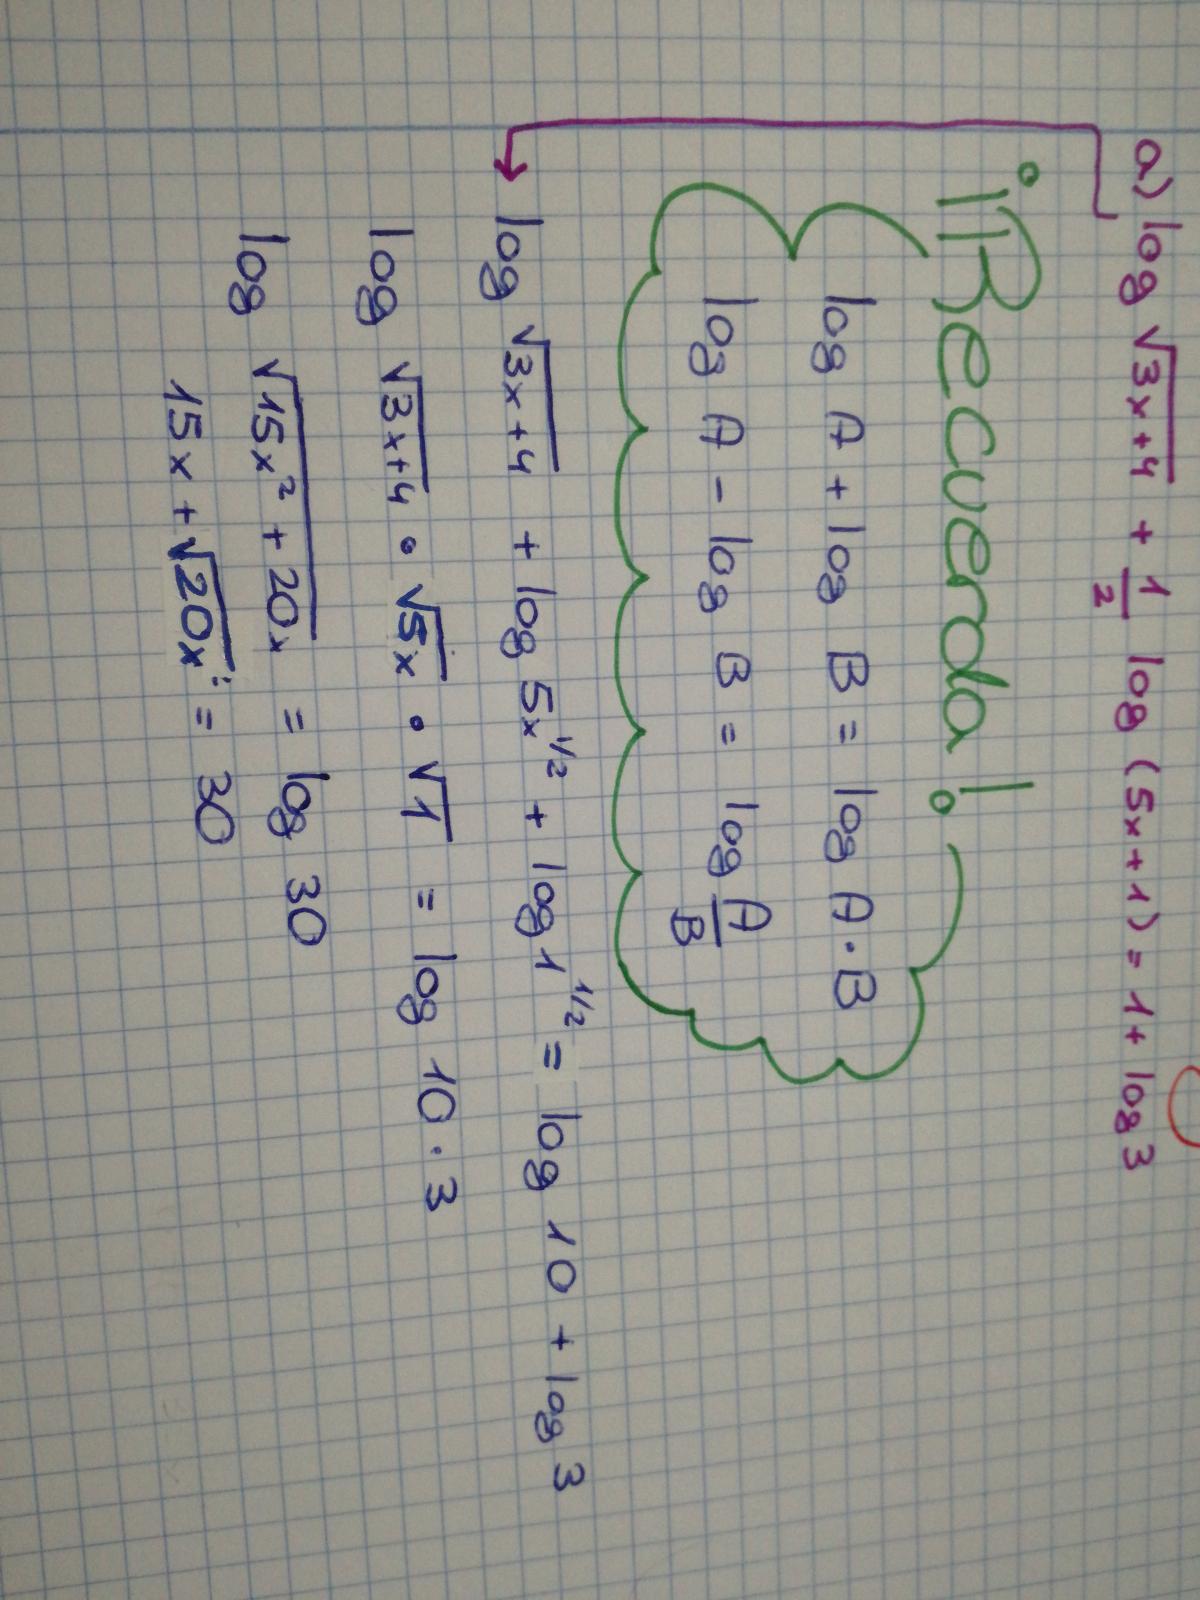 a) log √3x+4 + 1/2 log (5x+1) = 1 + log 3
¡Recuerda!
log A + log B = log A · B
log A - log B = log A/B
log √3x+4 + log 5x^1/2 + log 1^1/2 = log 10 + log 3
log √3x+4 · √5x · √1 = log 10 · 3
log √15x² + 20x = log 30
15x + √20x = 30